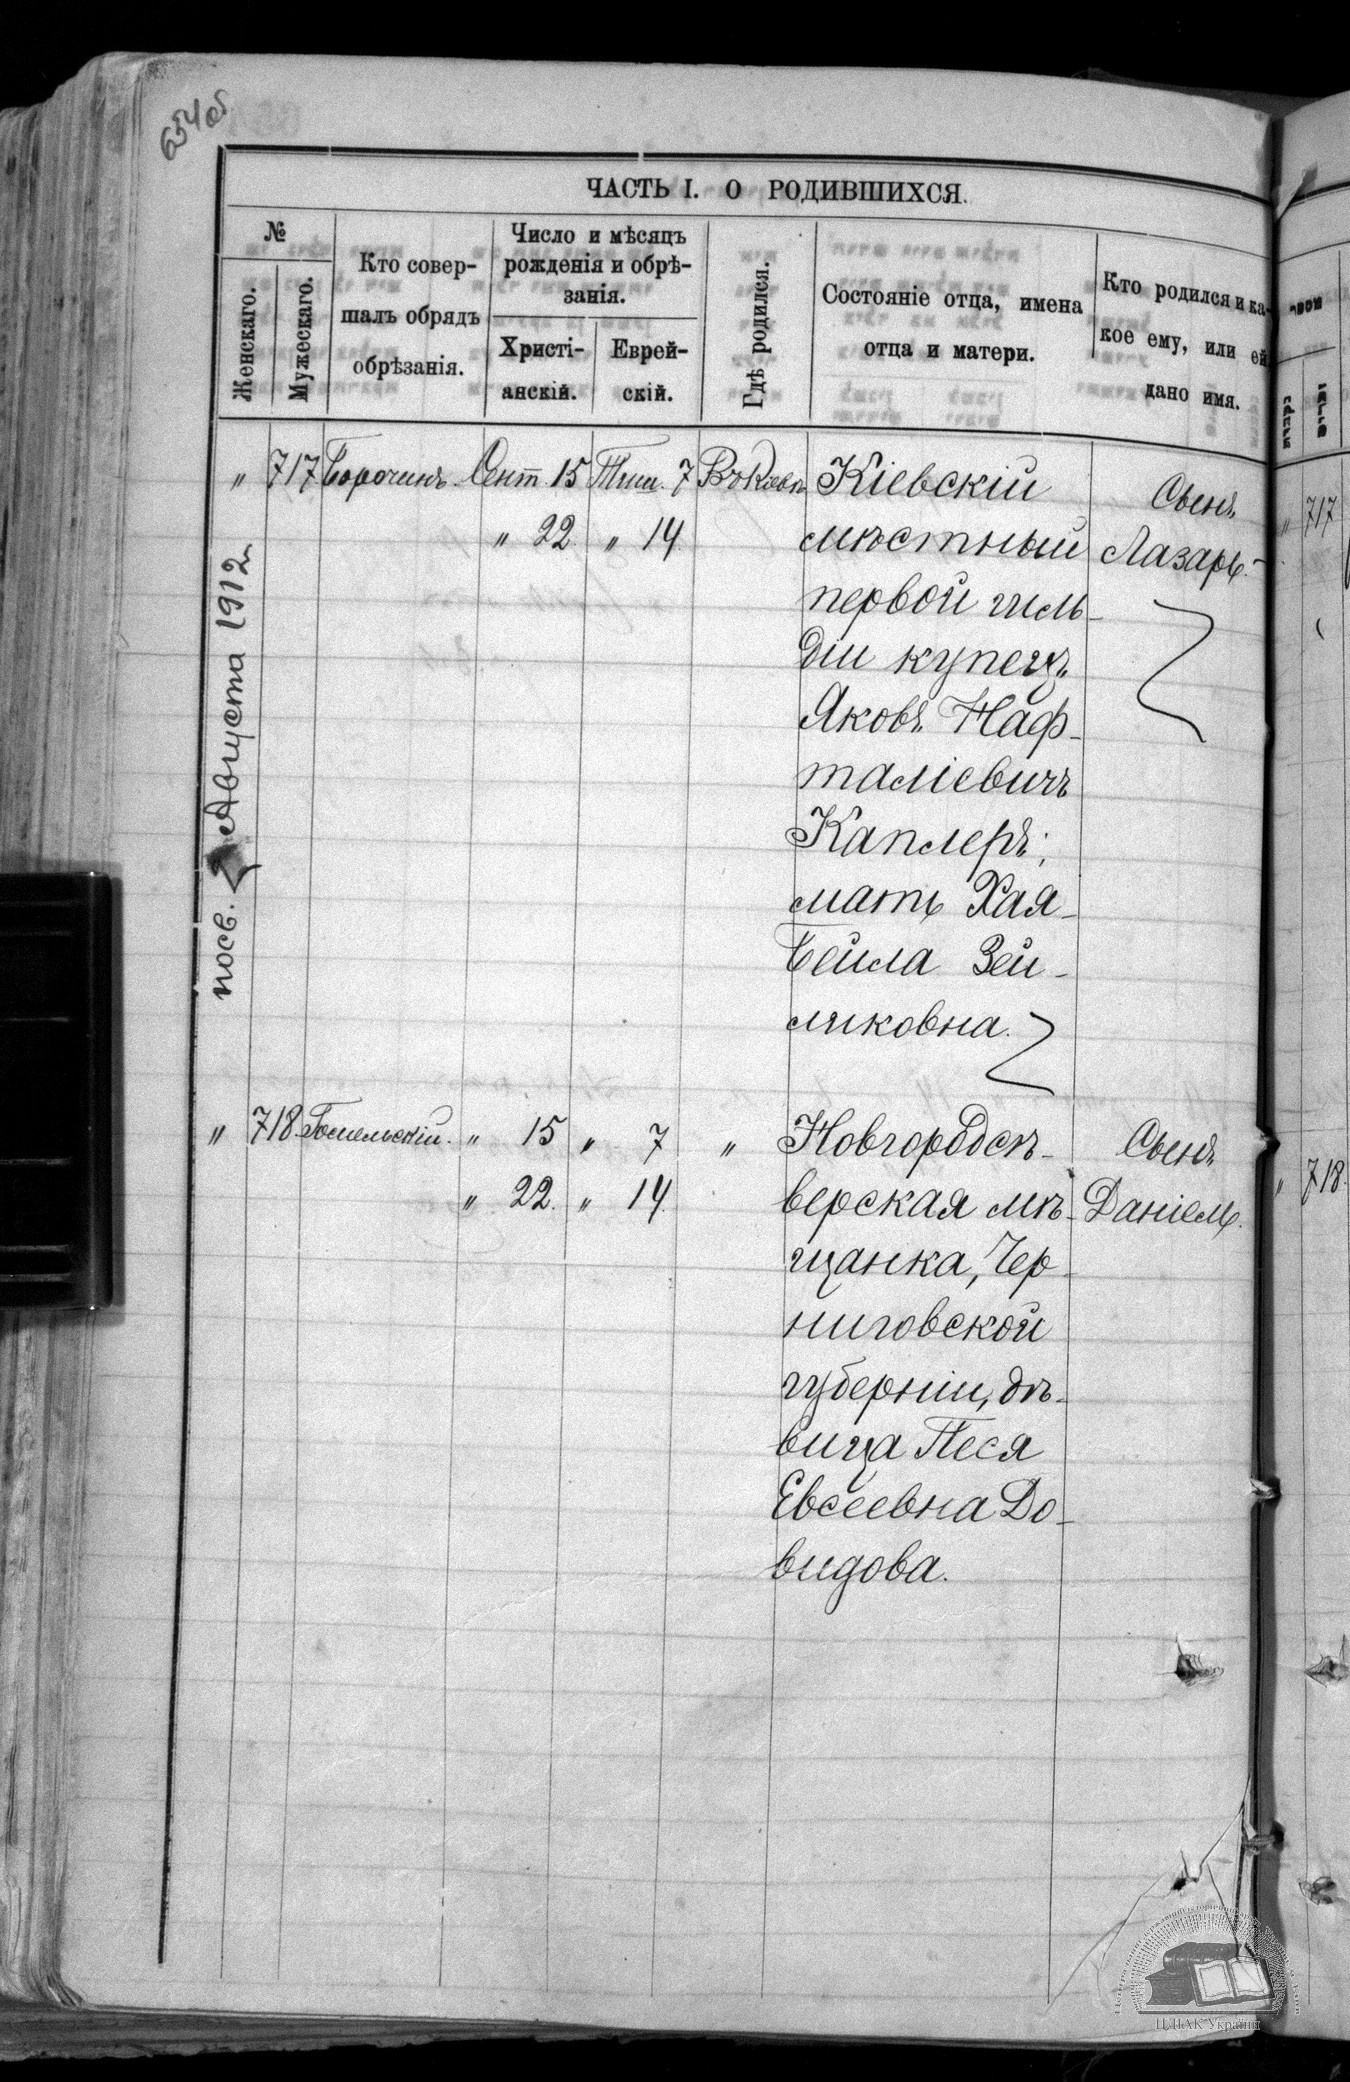 654об
ЧАСТЬ I. О РОДИВШИХСЯ.
№
Женскаго.
Мужескаго.
Кто совер-
шалъ обрядъ
обрѣзанія.
Число и мѣсяцъ
рожденія и обрѣ-
занія.
Христі-
анскій.
Еврей-
скій.
Гдѣ родился.
Состояніе отца, имена
отца и матери.
Кто родился и ка-
кое ему, или ей
дано имя.
" 717 Борочинъ. Сент. 15 Тиш. 7 Въ Кіевѣ
" 22. " 14.
Кіевскій
мѣстный
первой гиль-
діи купецъ
Яковъ Наф-
таліевичъ
Каплеръ;
мать Хая-
Бейла Зей-
ликовна.
Сынъ
Лазарь.
посв. 2 Августа 1912
" 718. Гомельскій. " 15 " 7 "
" 22. " 14.
Новгородсѣ-
верская мѣ-
щанка, Чер-
ниговской
губерніи, дѣ-
вица Песя
Евсеевна До-
видова.
Сынъ
Даніель.
" 717
" 718.
ЦДІАК України